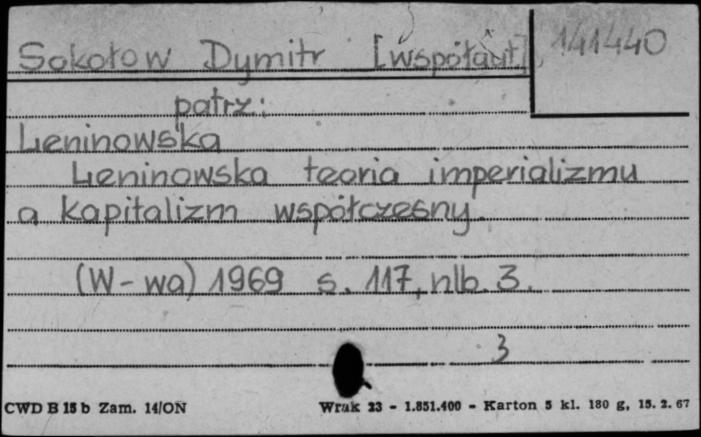 Sokołow Dymitr [współaut] 141440
patrz:
Leninowska
Leninowska teoria imperializmu
a kapitalizm współczesny.
(W-wa) 1969 s. 117, nlb. 3.
3
CWD B 15 b Zam. 14/ON Wrak 23 - 1.851.400 - Karton 5 kl. 180 g, 15. 2. 67